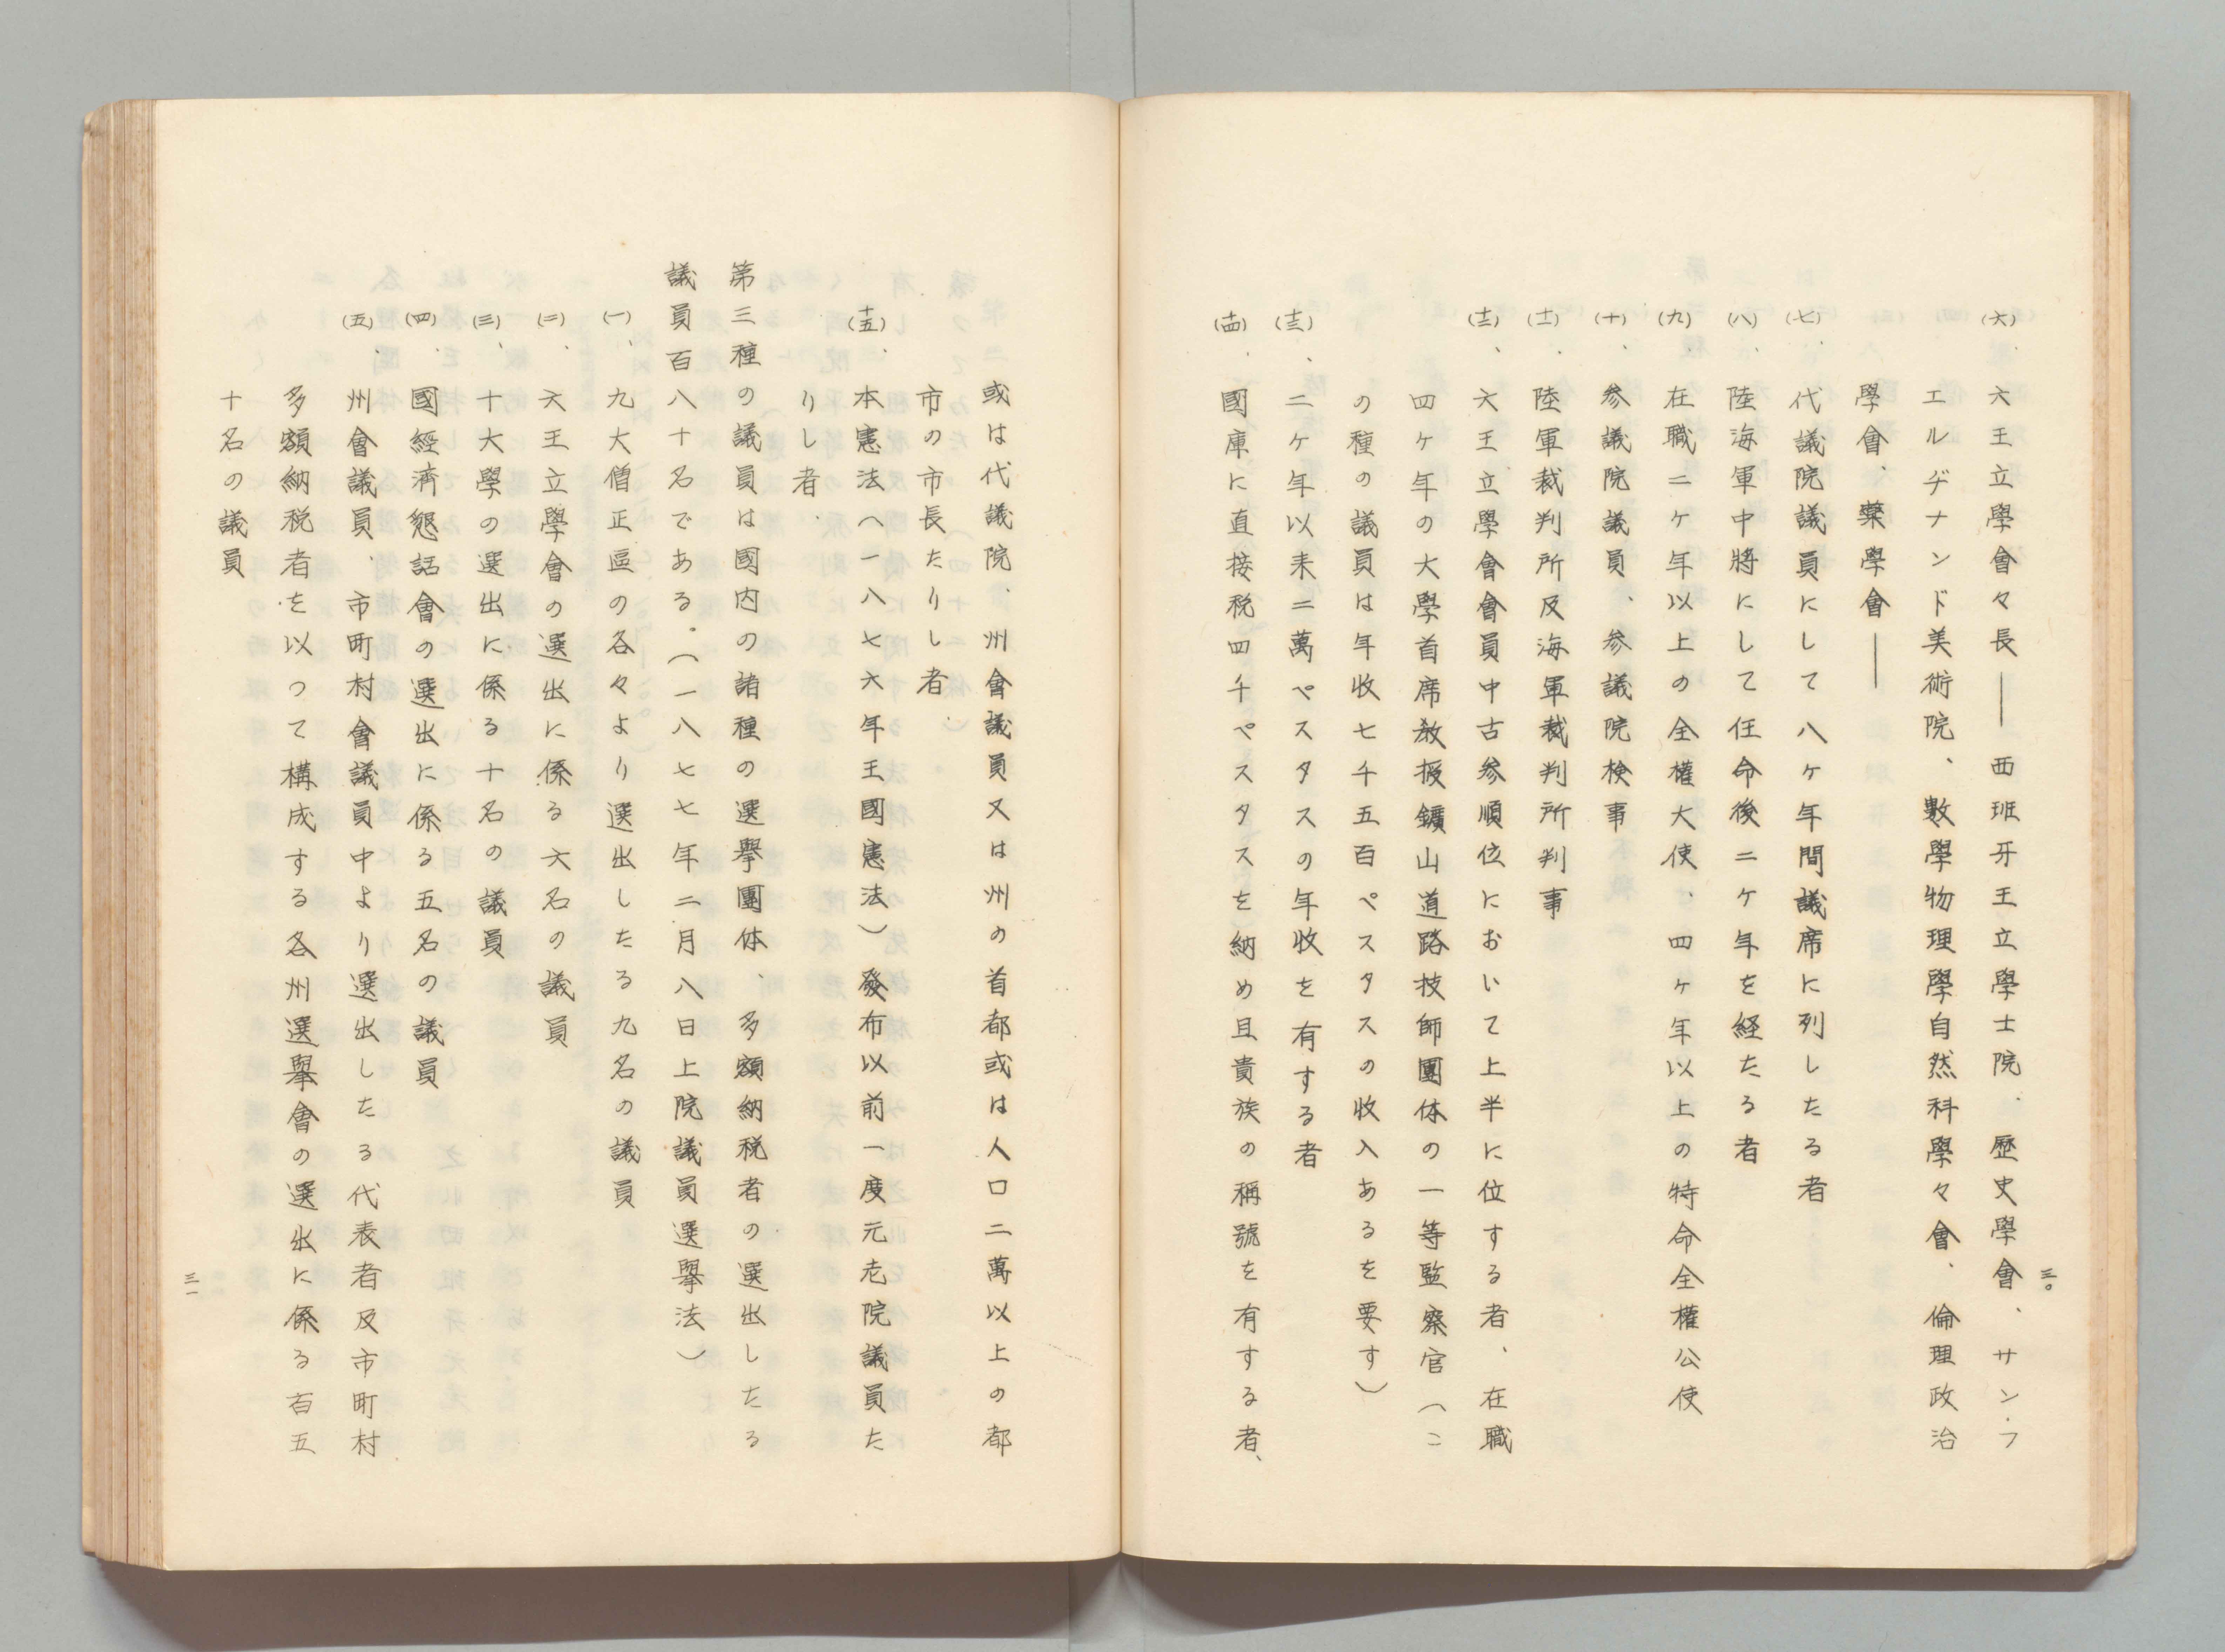 三〇
(六)、六王立學會々長——西班牙王立學士院、歴史學會、サン・フ
エルヂナンド美術院、數學物理學自然科學々會、倫理政治
學會、藥學會——
(七)、代議院議員にして八ヶ年間議席に列したる者
(八)、陸海軍中將にして任命後二ヶ年を経たる者
(九)、在職二ヶ年以上の全權大使、四ヶ年以上の特命全權公使
(十)、参議院議員、参議院検事
(十一)、陸軍裁判所及海軍裁判所判事
(十二)、六王立學會會員中古参順位において上半に位する者、在職
四ヶ年の大學首席教授鑛山道路技師團体の一等監察官(こ
の種の議員は年收七千五百ペスタスの收入あるを要す)
(十三)、二ヶ年以来二萬ペスタスの年收を有する者
(十四)、國庫に直接税四千ペスタスを納め且貴族の稱號を有する者、
或は代議院、州會議員又は州の首都或は人口二萬以上の都
市の市長たりし者、
(十五)、本憲法(一八七六年王國憲法)發布以前一度元老院議員た
りし者、
第三種の議員は國内の諸種の選擧團体、多額納税者の選出したる
議員百八十名である。(一八七七年二月八日上院議員選擧法)
(一)、九大僧正區の各々より選出したる九名の議員
(二)、六王立學會の選出に係る六名の議員
(三)、十大學の選出に係る十名の議員
(四)、國經濟懇話會の選出に係る五名の議員
(五)、州會議員、市町村會議員中より選出したる代表者及市町村
多額納税者を以つて構成する各州選擧會の選出に係る百五
十名の議員
三一